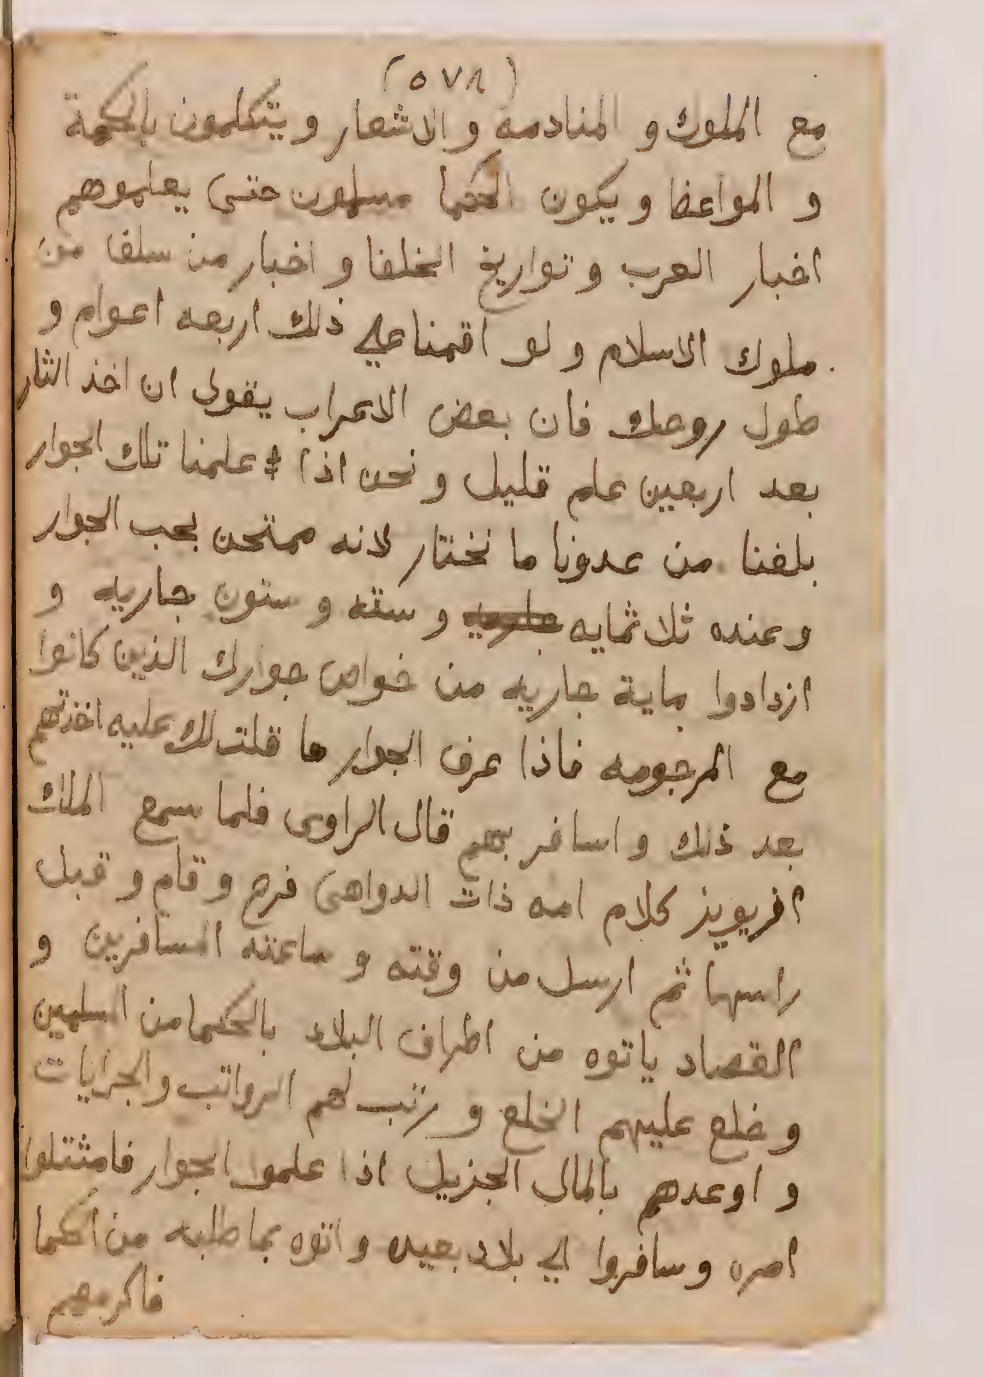 (٥٧٨)
مع الملوك و المنادمه و الاشعار و يتكلمون بالحكمة
و المواعظ و يكون الحكما مسلمون حتى يعلموهم
اخبار العرب و تواريخ الخلفا و اخبار من سلف من
ملوك الاسلام و لو اقمنا علي ذلك اربعه اعوام و
طول روحك فان بعض الاعراب يقول ان اخذ الثار
بعد اربعين عام قليل و نحن اذا علمنا تلك الجوار
بلغنا من عدونا ما نختار لانه ممتحن بحب الجوار
وعنده ثلاثمايه جاريه و سته و ستون جاريه و
ازدادوا بماية جاريه من خواص جوارك الذين كانوا
مع المرحومه فاذا عرف الجوار ما قلت لك عليه اخذتهم
بعد ذلك و اسافر بهم قال الراوى فلما سمع الملك
افريويذ كلام امه ذات الدواهى فرح و قام و قبل
راسها ثم ارسل من وقته و ساعته المسافرين و
القصاد ياتوه من اطراف البلاد بالحكما من المسلمين
و خلع عليهم الخلع و رتب لهم الرواتب والجرايات
و اوعدهم بالمال الجزيل اذا علموا الجوار فامتثلوا
امره و سافروا الي بلاد بعيده و اتوه بما طلبه من الحكما
فاكرمهم